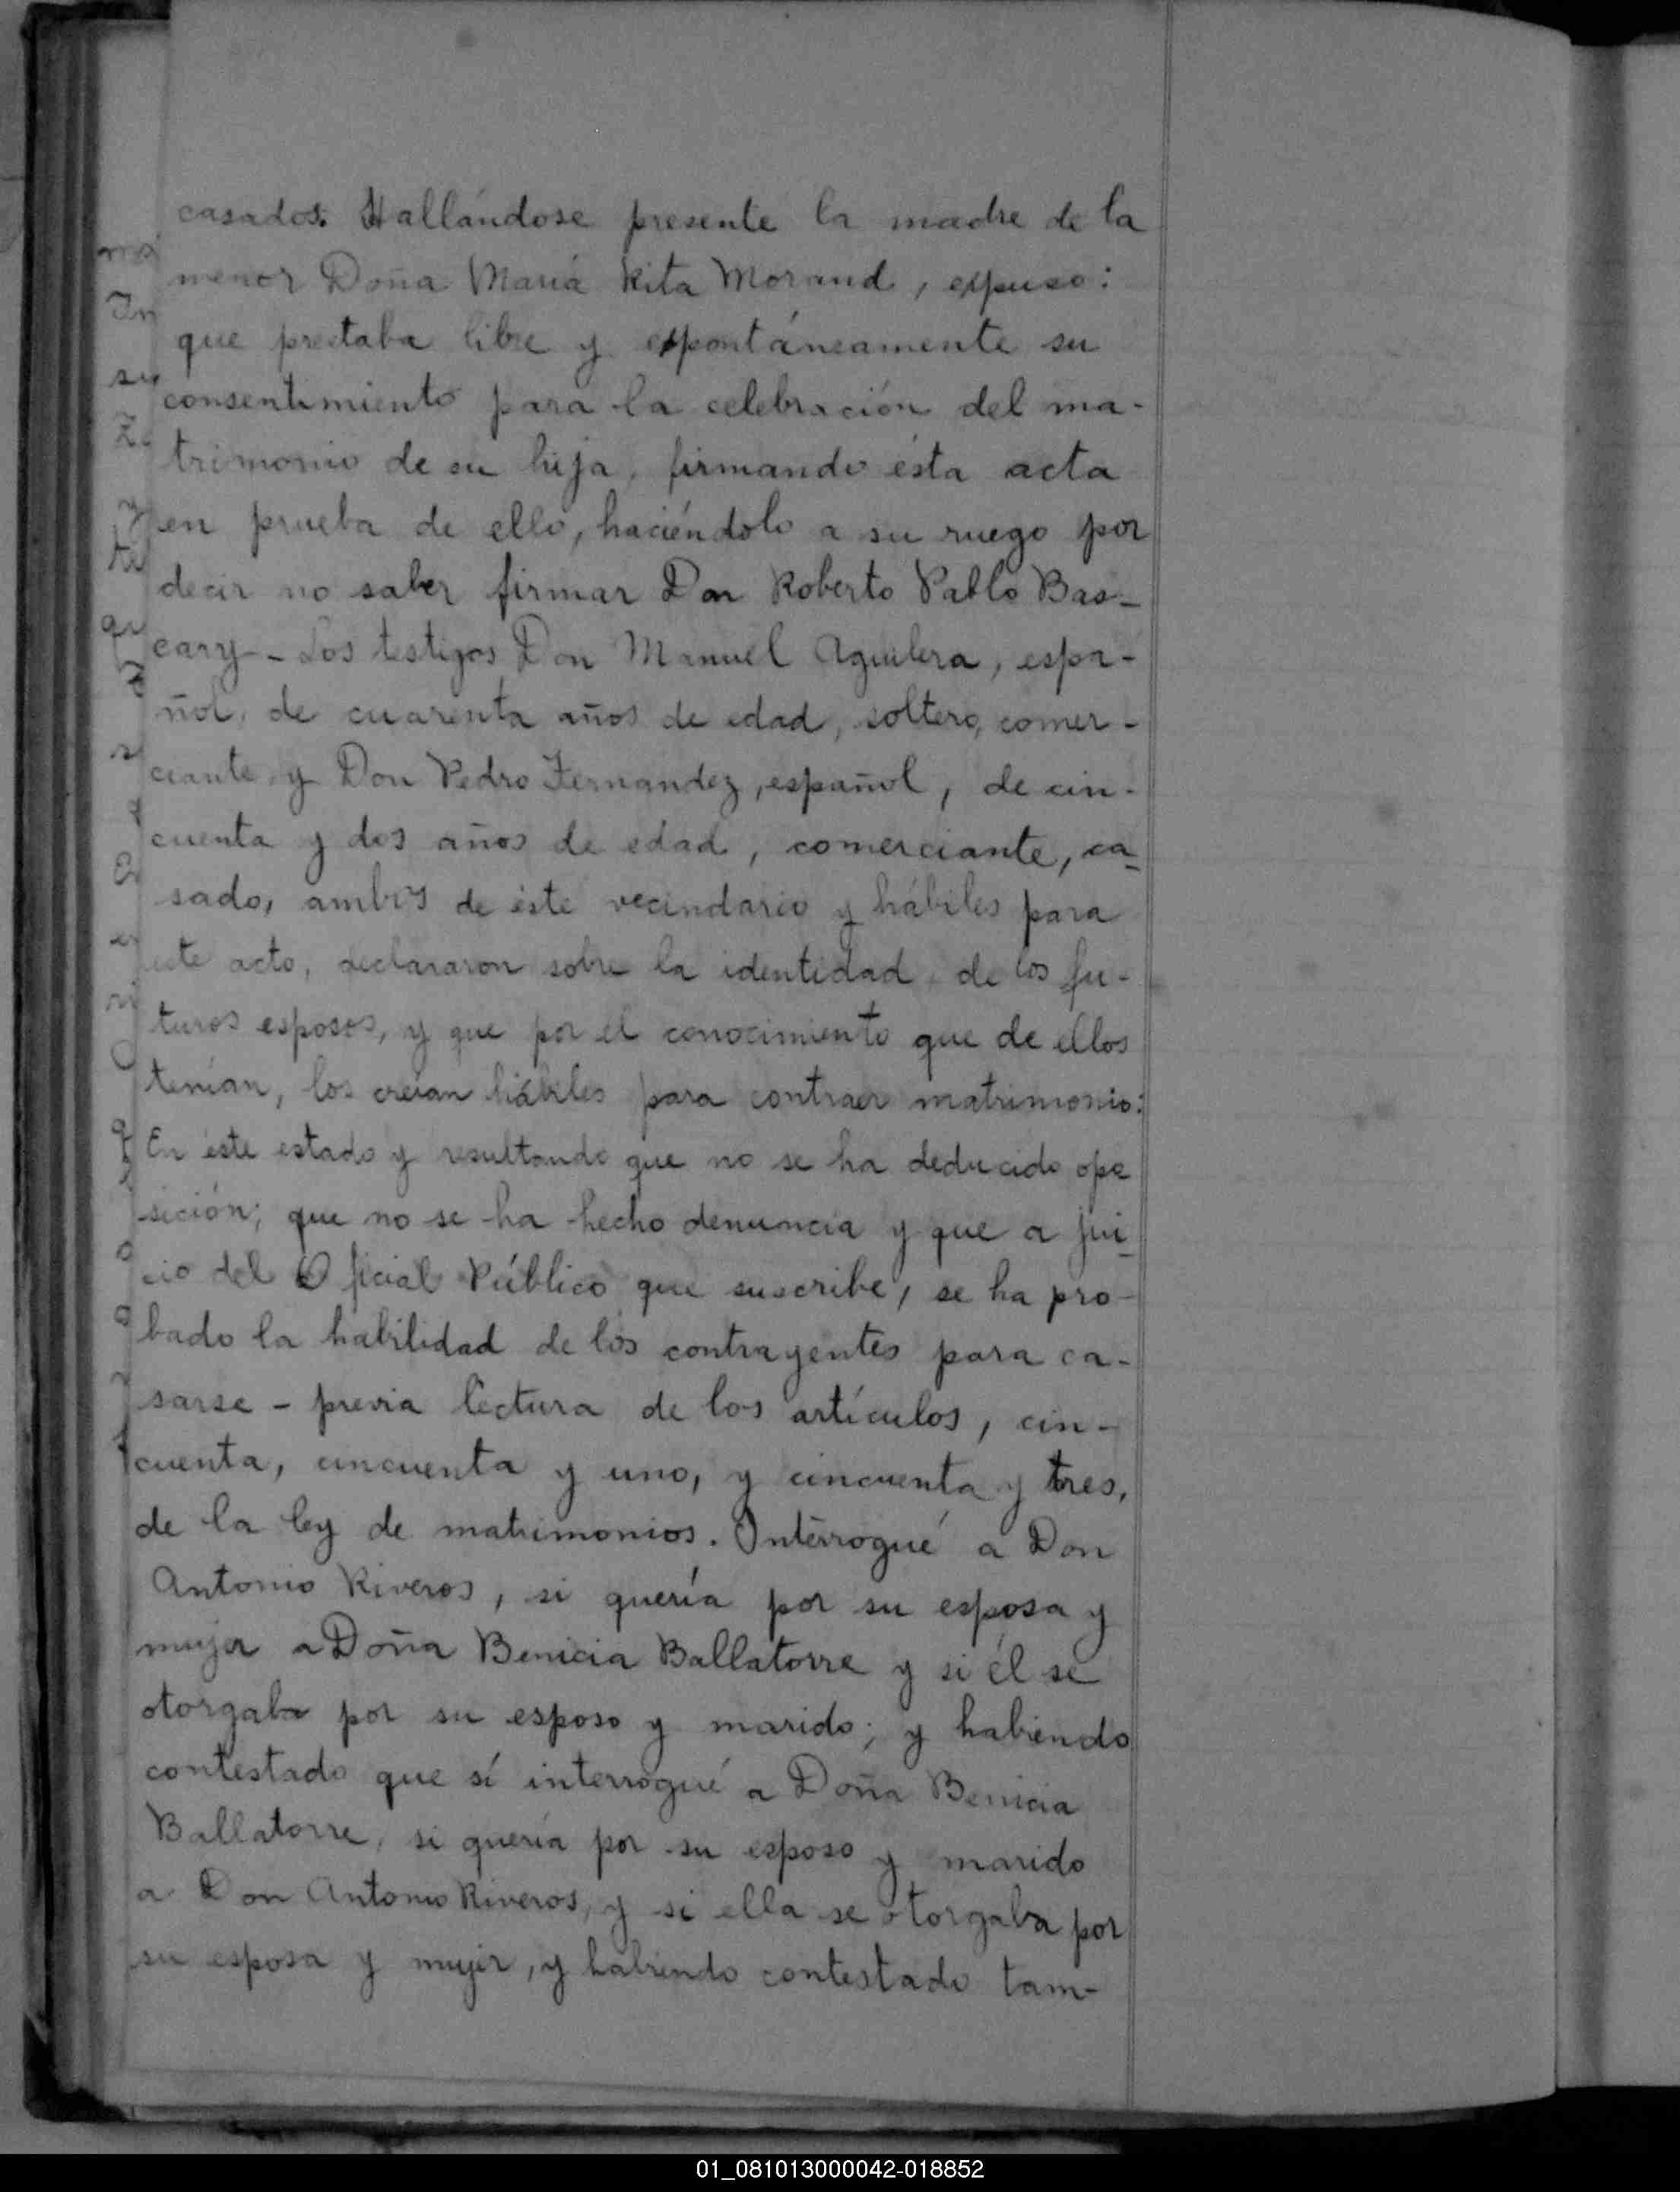 casados. Hallándose presente la madre de la
menor Doña María Rita Morand, expuso:
que prestaba libre y espontáneamente su
consentimiento para la celebración del ma-
trimonio de su hija, firmando ésta acta
en prueba de ello, haciéndolo a su ruego por
decir no saber firmar Don Roberto Pablo Bas-
cary - Los testigos Don Manuel Aguilera, espa-
ñol, de cuarenta años de edad, soltero, comer-
ciante y Don Pedro Fernandez, español, de cin-
cuenta y dos años de edad, comerciante, ca-
sado, ambos de éste vecindario y hábiles para
este acto, declararon sobre la identidad de los fu-
turos esposos, y que por el conocimiento que de ellos
tenían, los creían hábiles para contraer matrimonio:
En éste estado y resultando que no se ha deducido opo
sición; que no se ha hecho denuncia y que a jui-
cio del Oficial Público que suscribe, se ha pro-
bado la habilidad de los contrayentes para ca-
sarse - previa lectura de los artículos, cin-
cuenta, cincuenta y uno, y cincuenta y tres,
de la ley de matrimonios. Interrogué a Don
Antonio Riveros, si quería por su esposa y
mujer a Doña Benicia Ballatorre y si él se
otorgaba por su esposo y marido; y habiendo
contestado que sí interrogué a Doña Benicia
Ballatorre, si quería por su esposo y marido
a Don Antonio Riveros, y si ella se otorgaba por
su esposa y mujer, y habiendo contestado tam-
01_081013000042-018852